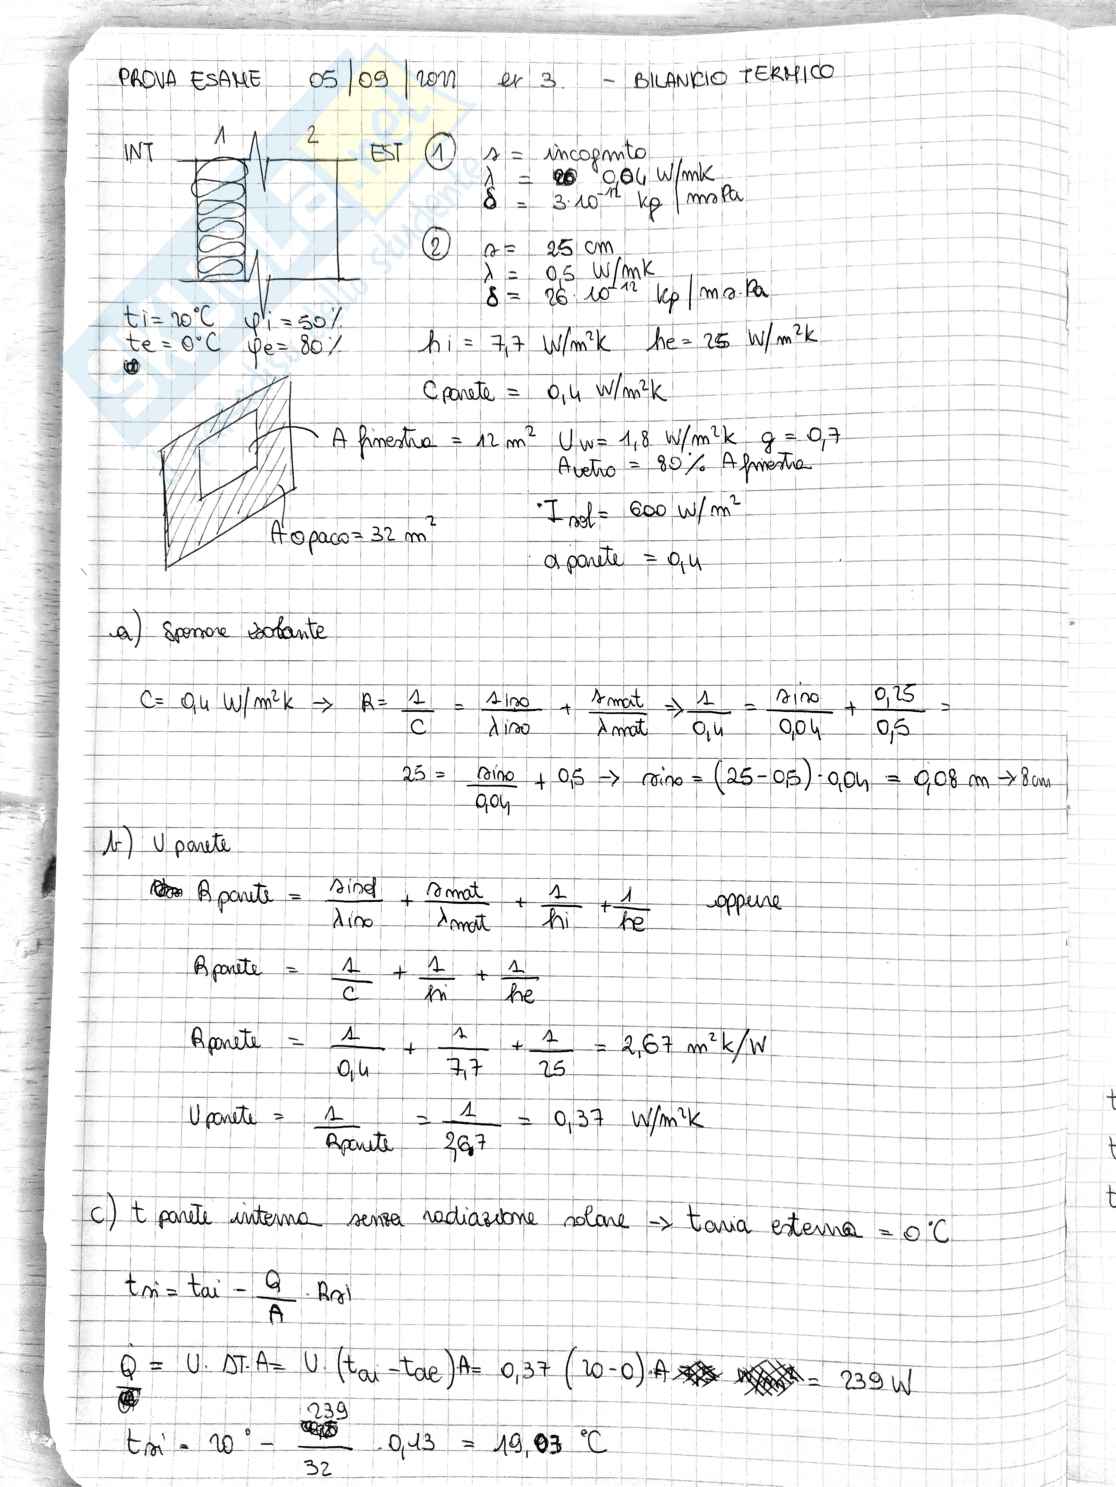 PROVA ESAME 05/09/2022 es 3. - BILANCIO TERMICO
1 2
INT EST
① s = incognito
λ = 0,04 W/mk
δ = 3·10⁻¹² kg/msPa
② s = 25 cm
λ = 0,5 W/mk
δ = 26·10⁻¹² kg/ms·Pa
ti = 20°C φi = 50%
te = 0°C φe = 80%
hi = 7,7 W/m²k he = 25 W/m²k
C parete = 0,4 W/m²k
A finestra = 12 m² Uw = 1,8 W/m²k g = 0,7
A vetro = 80% A finestra
I sol = 600 W/m²
A opaco = 32 m²
a parete = 0,4
a) Spessore isolante
C = 0,4 W/m²k → R = 1/C = siso/λiso + smat/λmat ⇒ 1/0,4 = siso/0,04 + 0,25/0,5 =
25 = siso/0,04 + 0,5 → siso = (25-0,5)·0,04 = 0,08 m → 8cm
b) U parete
R parete = sisol/λiso + smat/λmat + 1/hi + 1/he oppure
R parete = 1/C + 1/hi + 1/he
R parete = 1/0,4 + 1/7,7 + 1/25 = 2,67 m²k/W
U parete = 1/Rparete = 1/26,7 = 0,37 W/m²k
c) t parete interna senza radiazione solare → t aria esterna = 0°C
tsi = tai - Q/A · Rsi
Q = U·ΔT·A = U·(tai - tae)A = 0,37 (20-0)·A = 239 W
tsi = 20° - 239/32 · 0,13 = 19,03 °C